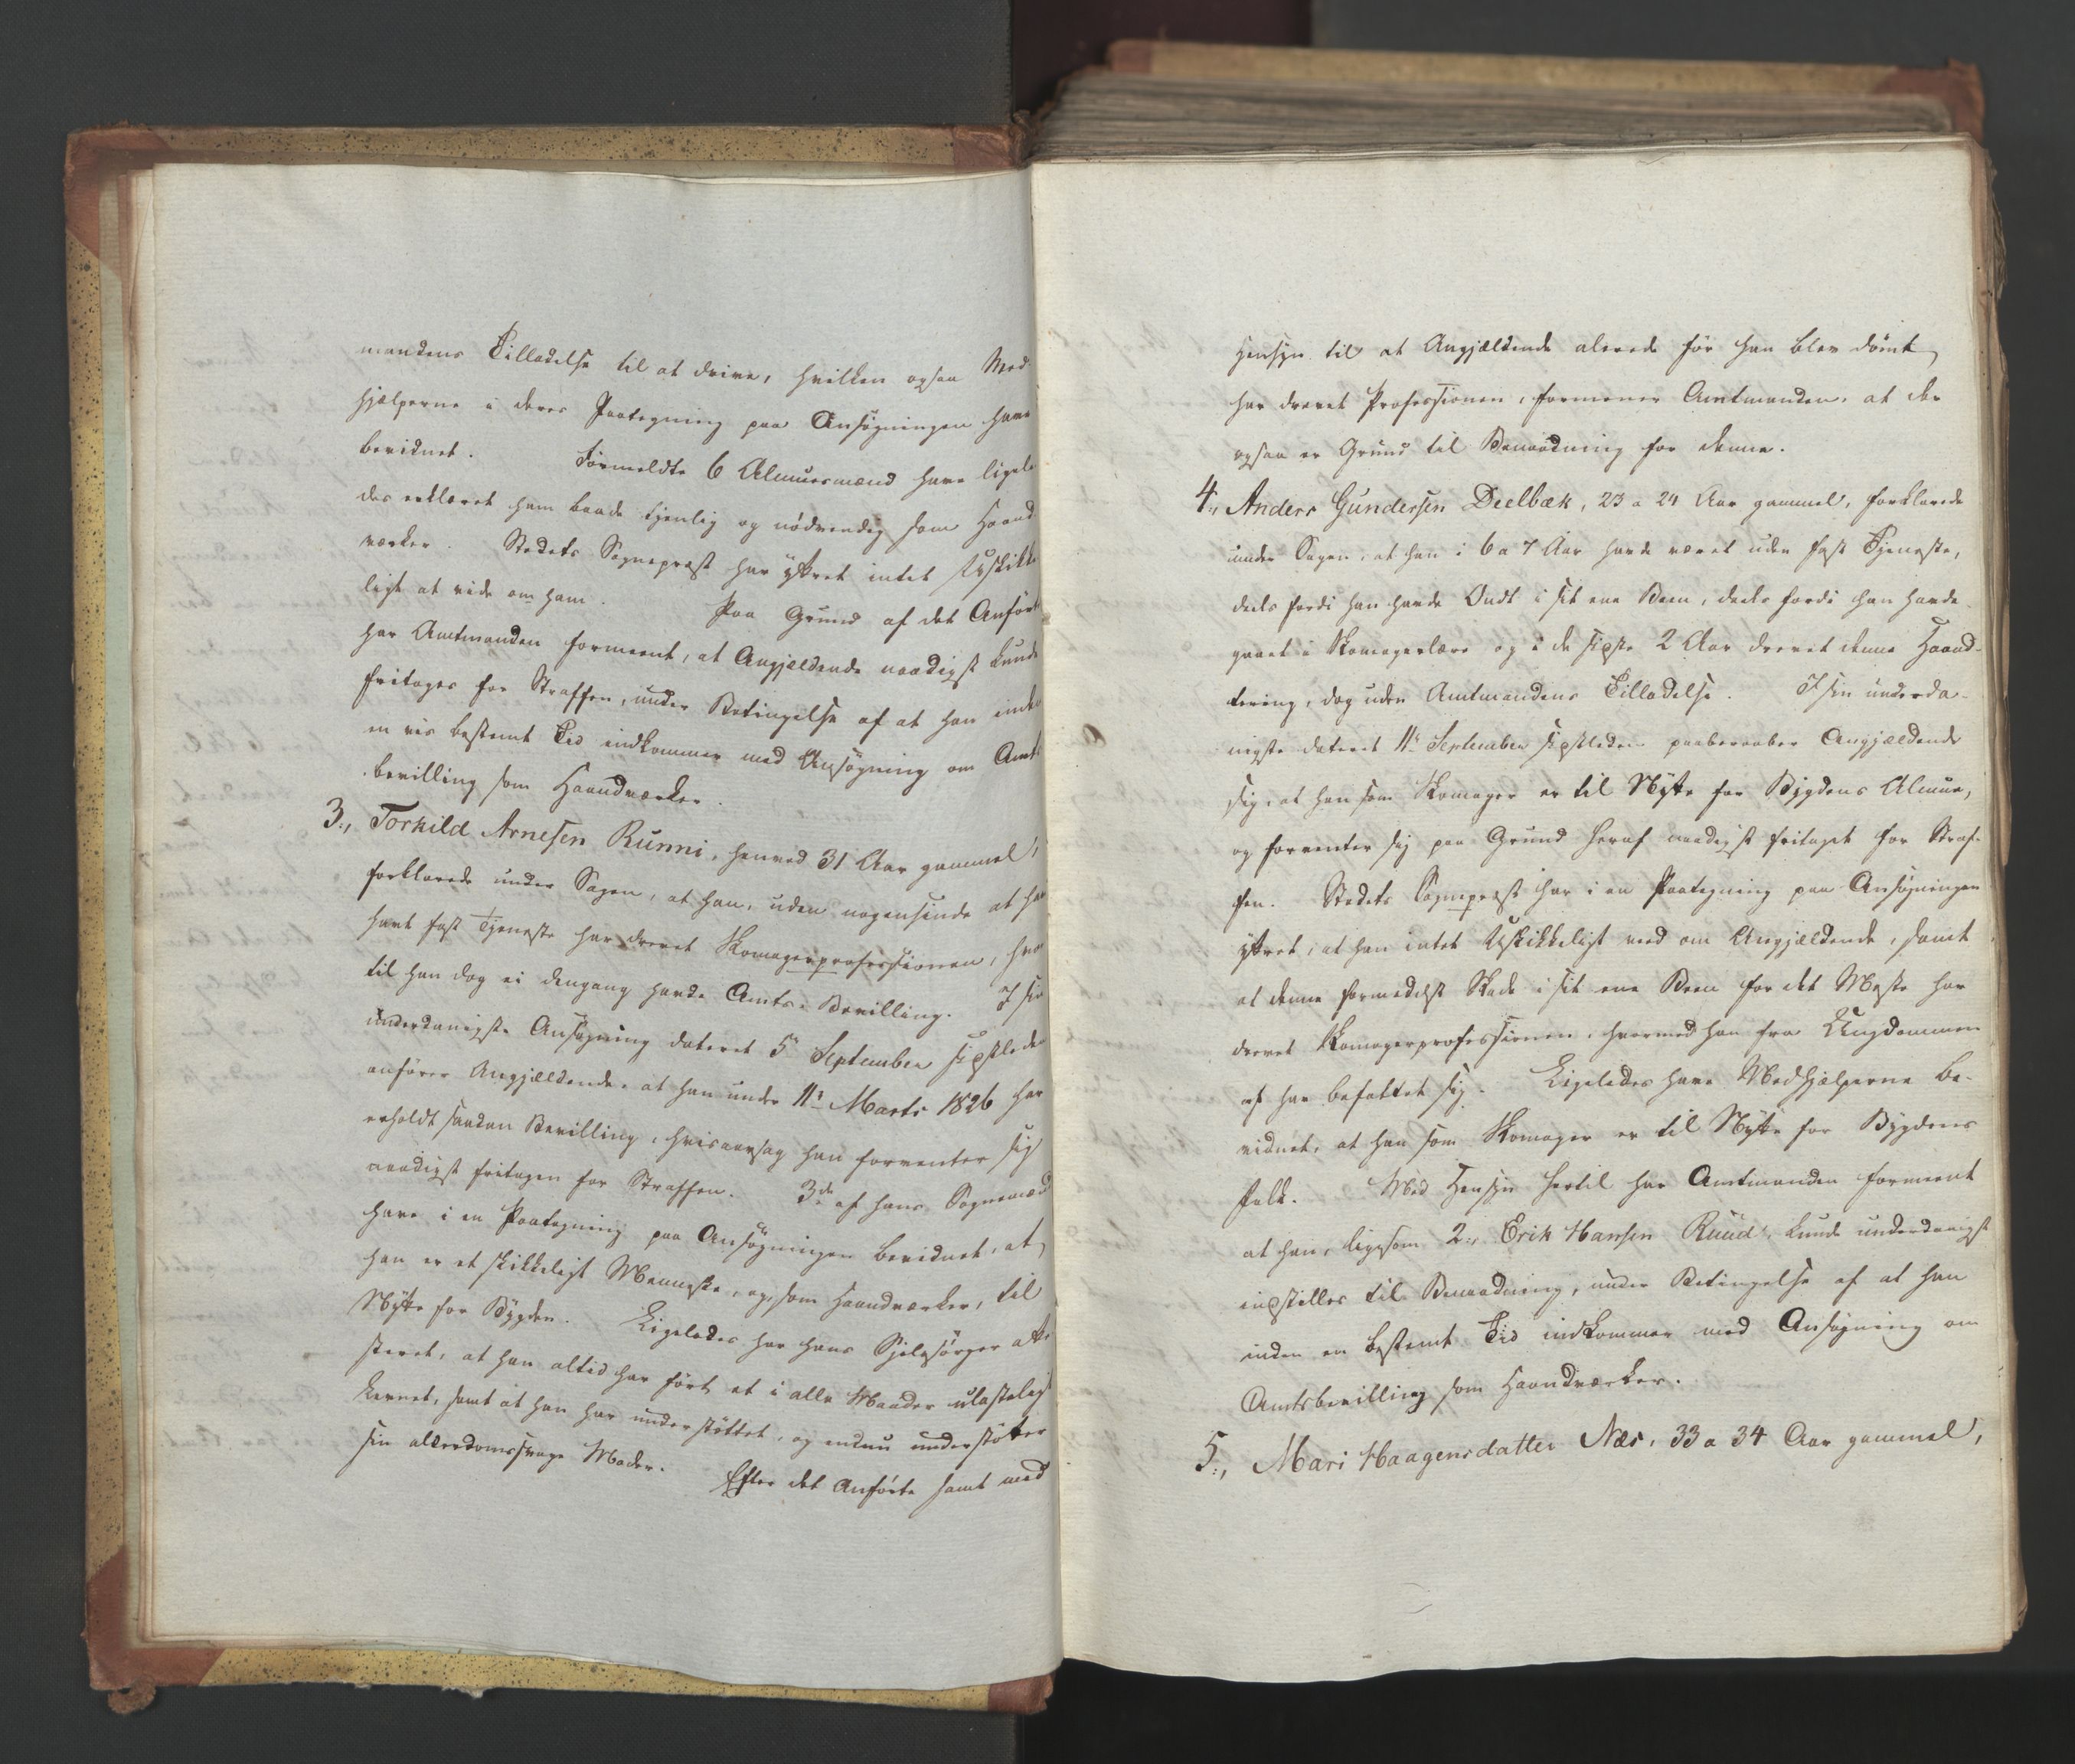 mandens Tilladelse til at drive, hvilken ogsaa Med
hjælperne i deres Paategning paa Ansøgningen have
bevidnet. Førmeldte 6 Almuesmænd have ligele
des erklæret ham baade tjenlig og nødvendig som Haand
værker. Stedets Sognepræst har yttret intet Uskikke
ligt at vide om ham. Paa Grund af det Anførte
har Amtmanden formeent, at Angjældende naadigst kunde
fritages for Straffen, under Betingelse af at han inden
en vis bestemt Tid indkommer med Ansøgning om Amts
bevilling som Haandværker.
3., Torkild Arnesen Runni, henved 31 Aar gammel,
forklarede under Sagen, at han, uden nogensinde at have
havt fast Tjeneste har drevet Skomagerprofessionen, hvor
til han dog ei dengang havde Amts-Bevilling. I sin
underdanigste Ansøgning dateret 5te September sidstleden
anfører Angjældende, at han under 11te Marts 1826 har
erholdt saadan Bevilling, hvisaarsag han forventer sig
naadigst fritagen for Straffen. 3de af hans Sognemænd
have i en Paategning paa Ansøgningen bevidnet, at
han er et skikkeligt Menneske, og, som Haandværker, til
Nytte for Bygden. Ligeledes har hans Sjelesørger atte
steret, at han altid har ført et i alle Maader ulasteligt
Levnet, samt at han har understøttet, og endnu understøtter
sin alderdomssvage Moder. Efter det Anførte samt med
Hensyn til at Angjældende alerede før han blev dømt,
har drevet Professionen, formener Amtmanden, at der
ogsaa er Grund til Benaadning for denne.
4., Anders Gundersen Deelbæk, 23 a 24 Aar gammel, forklarede
under Sagen, at han i 6 a 7 Aar havde været uden fast Tjeneste,
deels fordi han havde Ondt i sit ene Been, deels fordi han havde
gaaet i Skomagerlære og i de sidste 2 Aar drevet denne Haand-
tering, dog uden Amtmandens Tilladelse. I sin underda-
nigste dateret 11te September sidstleden paaberaaber Angjældende
sig, at han som Skomager er til Nytte for Bygdens Almue,
og forventer sig paa Grund heraf naadigst fritaget for Straf-
fen. Stedets Sognepræst har i en Paategning paa Ansøgningen
yttret, at han intet Uskikkeligt veed om Angjældende, samt
at denne formedelst Skade i sit ene Been for det Meste har
drevet Skomagerprofessionen, hvormed han fra Ungdommen
af har befattet sig. Ligeledes have Medhjælperne be-
vidnet, at han som Skomager er til Nytte for Bygdens
Folk. Med Hensyn hertil har Amtmanden formeent
at han, ligesom 2., Erik Hansen Ruud, kunde underdanigst
indstilles til Benaadning, under Betingelse af at han
inden en bestemt Tid indkommer med Ansøgning om
Amtsbevilling som Haandværker.
5., Mari Haagensdatter Næs, 33 a 34 Aar gammel,